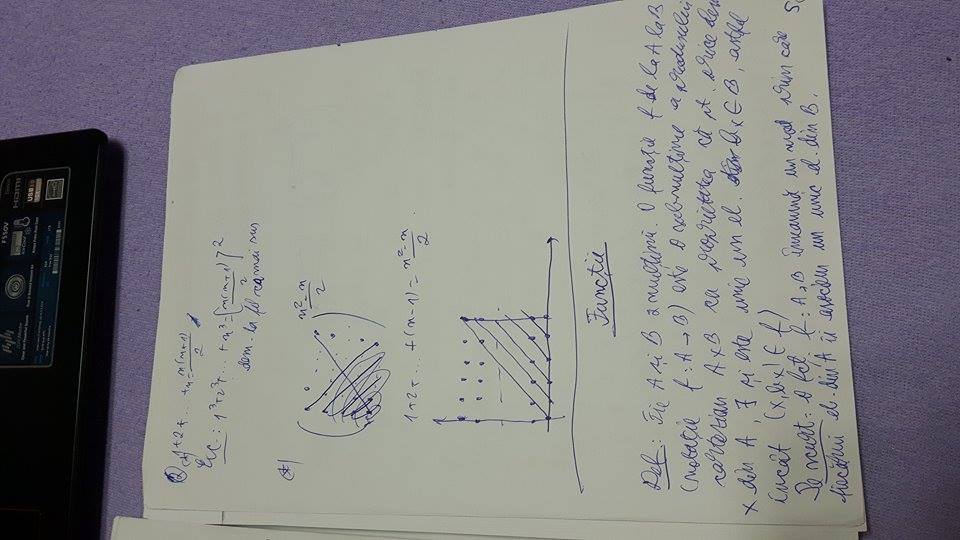 (*) 1+2+...+n = n(n+1)/2
Exc.: 1³+2³+...+n³ = [n(n+1)/2]²
dem. la fel ca mai sus
(*)
n²-n/2
1+2+...+(n-1) = n²-n/2.
Funcție
Def: Fie A și B 2 mulțimi. O funcție f de la A la B
(notație f: A→B) este o submulțime a produsului
cartezian A×B cu proprietatea că pt. orice elem
x din A, ∃ și este unic un el. bₓ∈B, astfel
încât (x,bₓ)∈f)
Pe scurt: o fct. f: A→B înseamnă un mod prin care
fiecărui el. din A îi asociem un unic el. din B.
F550V
HDMI
USB